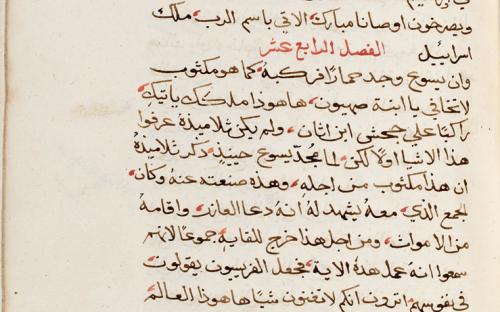 ويصرخون اوصانا مبارك الاتي باسم الرب ملك
اسراييل الفصل الرابع عشر
وان يسوع وجد حمارًا فركبه كما هو مكتوب
لا تخافي يا ابنة صهيون هاهوذا ملكك ياتيك
راكبًا علي جحش ابن اتان ولم يكن تلاميذه عرفوا
هذا الاشيا اولًا لكن لما مجد يسوع حينيذ ذكر تلاميذه
ان هذا مكتوب من اجله وهذه صنعته عنه وكان
الجمع الذي معه يشهد له انه دعا العازر واقامه
من الاموات ومن اجل هذا خرج للقايه جموعًا لانهم
سمعوا انه عمل هذه الاية فجعل الفريسيون يقولون
في نفوسهم اترون انكم لا تغنون شيًا هاهوذا العالم